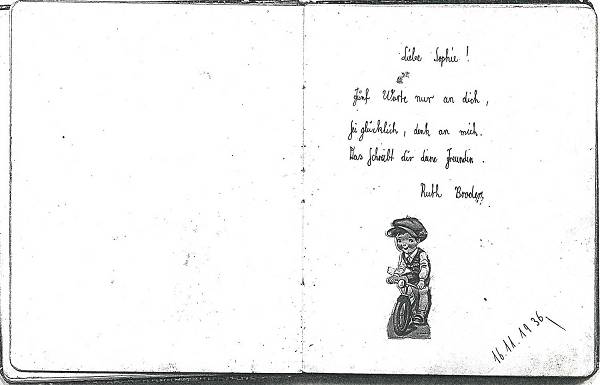 Liebe Sophie!
Fünf Worte nur an dich,
sei glücklich, denk an mich.
Das schreibt dir deine Freundin.
Ruth Broders
16.11.1936